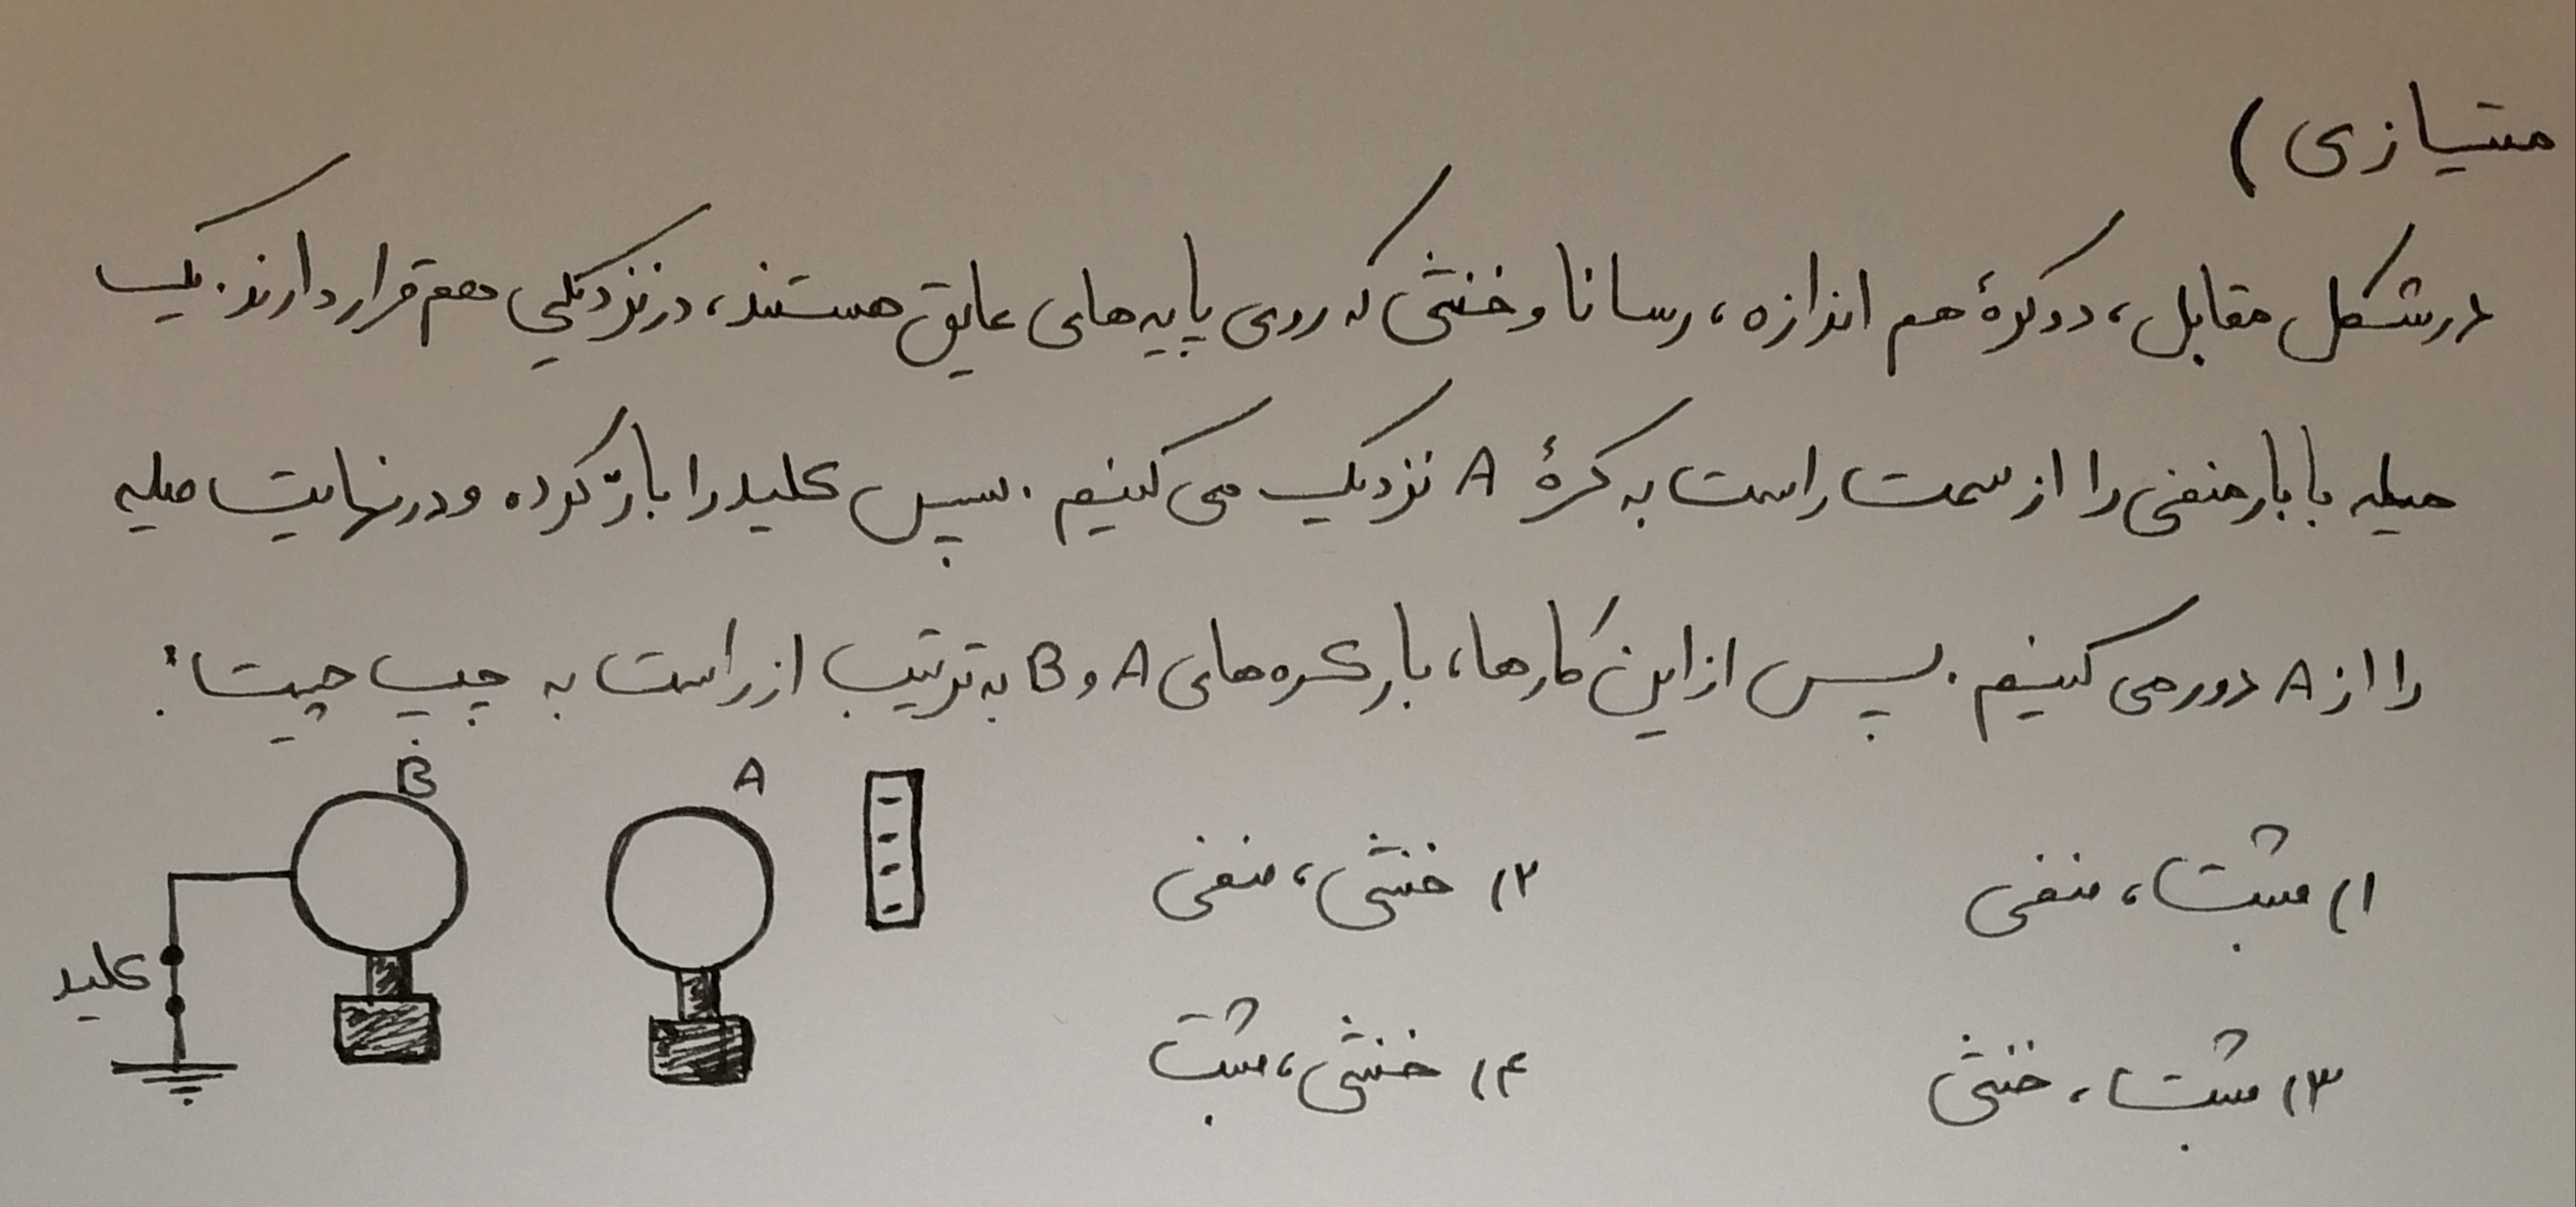 متیازی)
در شکل مقابل، دو کرهٔ هم اندازه، رسانا و خنثی که روی پایه‌های عایق هستند، در نزدیکی هم قرار دارند. یک
میله با بار منفی را از سمت راست به کرهٔ A نزدیک می کنیم. سپس کلید را باز کرده و در نهایت میله
را از A دور می کنیم. پس از این کارها، بار کره‌های A و B به ترتیب از راست به چپ چیست؟
۱) مثبت، منفی
۲) خنثی، منفی
۳) مثبت، خنثی
۴) خنثی، مثبت
B
A
کلید